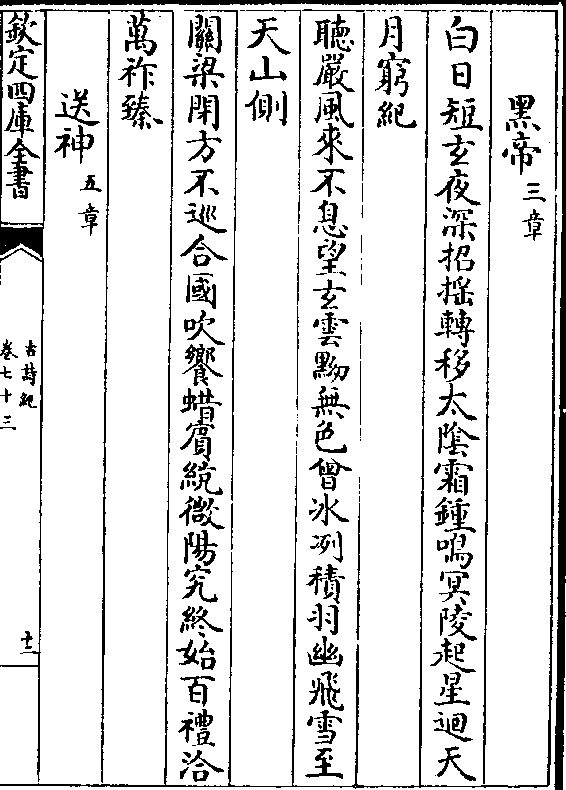 黑帝三章
白日短玄夜深招摇轉移太陰霜鍾鳴冥陵起星迴天
月窮紀
聽嚴風來不息望玄雲黝無色曾冰冽積羽幽飛雪至
天山側
關梁閉方不巡合國吹饗蜡賓統微陽究終始百禮洽
萬祚臻
送神五章
欽定四庫全書
古詩紀
卷七十三
十二